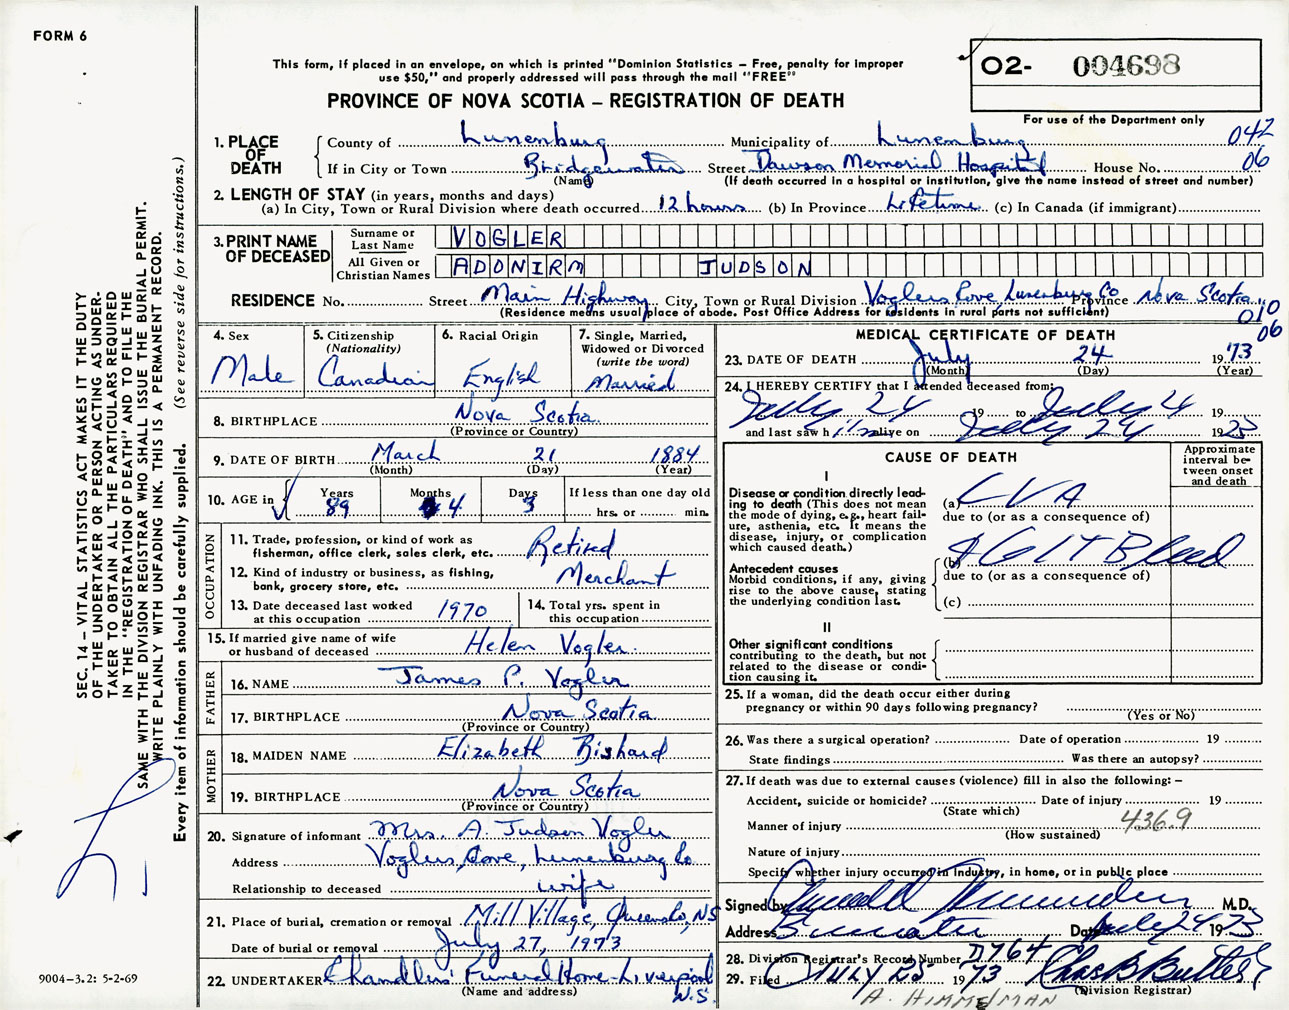 FORM 6
This form, if placed in an envelope, on which is printed "Dominion Statistics – Free, penalty for improper
use $50," and properly addressed will pass through the mail "FREE"
PROVINCE OF NOVA SCOTIA – REGISTRATION OF DEATH
02- 004698
For use of the Department only
042
06
1. PLACE OF DEATH
County of Lunenburg Municipality of Lunenburg
If in City or Town Bridgewater Street Dawson Memorial Hospital House No.
(Name) (If death occurred in a hospital or institution, give the name instead of street and number)
2. LENGTH OF STAY (in years, months and days)
(a) In City, Town or Rural Division where death occurred 12 hours (b) In Province Lifetime (c) In Canada (if immigrant)
3. PRINT NAME OF DECEASED
Surname or Last Name VOGLER
All Given or Christian Names ADONIRM JUDSON
RESIDENCE No. Street Main Highway City, Town or Rural Division Voglers Cove, Lunenburg Co Province Nova Scotia
(Residence means usual place of abode. Post Office Address for residents in rural parts not sufficient)
010
06
4. Sex Male
5. Citizenship (Nationality) Canadian
6. Racial Origin English
7. Single, Married, Widowed or Divorced (write the word) Married
8. BIRTHPLACE Nova Scotia
(Province or Country)
9. DATE OF BIRTH March 21 1884
(Month) (Day) (Year)
10. AGE in Years 89 Months 4 Days 3 If less than one day old
hrs. or min.
OCCUPATION
11. Trade, profession, or kind of work as fisherman, office clerk, sales clerk, etc. Retired
12. Kind of industry or business, as fishing, bank, grocery store, etc. Merchant
13. Date deceased last worked at this occupation 1970
14. Total yrs. spent in this occupation
15. If married give name of wife or husband of deceased Helen Vogler
FATHER
16. NAME James P. Vogler
17. BIRTHPLACE Nova Scotia
(Province or Country)
MOTHER
18. MAIDEN NAME Elizabeth
19. BIRTHPLACE Nova Scotia
(Province or Country)
20. Signature of informant Mrs. A. Judson Vogler
Address Voglers Cove, Lunenburg Co
Relationship to deceased wife
21. Place of burial, cremation or removal Mill Village, Queens Co, NS
Date of burial or removal July 27, 1973
22. UNDERTAKER Chandlers' Funeral Home - Liverpool
N.S.
(Name and address)
MEDICAL CERTIFICATE OF DEATH
23. DATE OF DEATH July 24 1973
(Month) (Day) (Year)
24. I HEREBY CERTIFY that I attended deceased from:
July 24 19 to July 4 19
and last saw him alive on July 24 1973
CAUSE OF DEATH
Approximate interval between onset and death
I
Disease or condition directly leading to death (This does not
mean the mode of dying, e.g., heart failure, asthenia, etc. It means the
disease, injury, or complication
which caused death.)
(a) CVA
due to (or as a consequence of)
(b) GIT Bleed
due to (or as a consequence of)
(c)
Antecedent causes
Morbid conditions, if any, giving
rise to the above cause, stating
the underlying condition last.
II
Other significant conditions
contributing to the death, but not
related to the disease or condition
causing it.
25. If a woman, did the death occur either during
pregnancy or within 90 days following pregnancy?
(Yes or No)
26. Was there a surgical operation? Date of operation 19
State findings Was there an autopsy?
27. If death was due to external causes (violence) fill in also the following: –
Accident, suicide or homicide? Date of injury 19
(State which)
Manner of injury 436.9
(How sustained)
Nature of injury
Specify whether injury occurred in Industry, in home, or in public place
Signed by M.D.
Address Date July 24 1973
28. Division Registrar's Record Number D764
29. Filed JULY 25 1973 Chas B Butler
(Division Registrar)
A. HIMMELMAN
SEC. 14 – VITAL STATISTICS ACT MAKES IT THE DUTY
OF THE UNDERTAKER OR PERSON ACTING AS UNDER-
TAKER TO OBTAIN ALL THE PARTICULARS REQUIRED
IN THE "REGISTRATION OF DEATH" AND TO FILE THE
SAME WITH THE DIVISION REGISTRAR WHO SHALL ISSUE THE BURIAL PERMIT.
WRITE PLAINLY WITH UNFADING INK. THIS IS A PERMANENT RECORD.
Every item of Information should be carefully supplied. (See reverse side for instructions.)
9004-3.2: 5-2-69